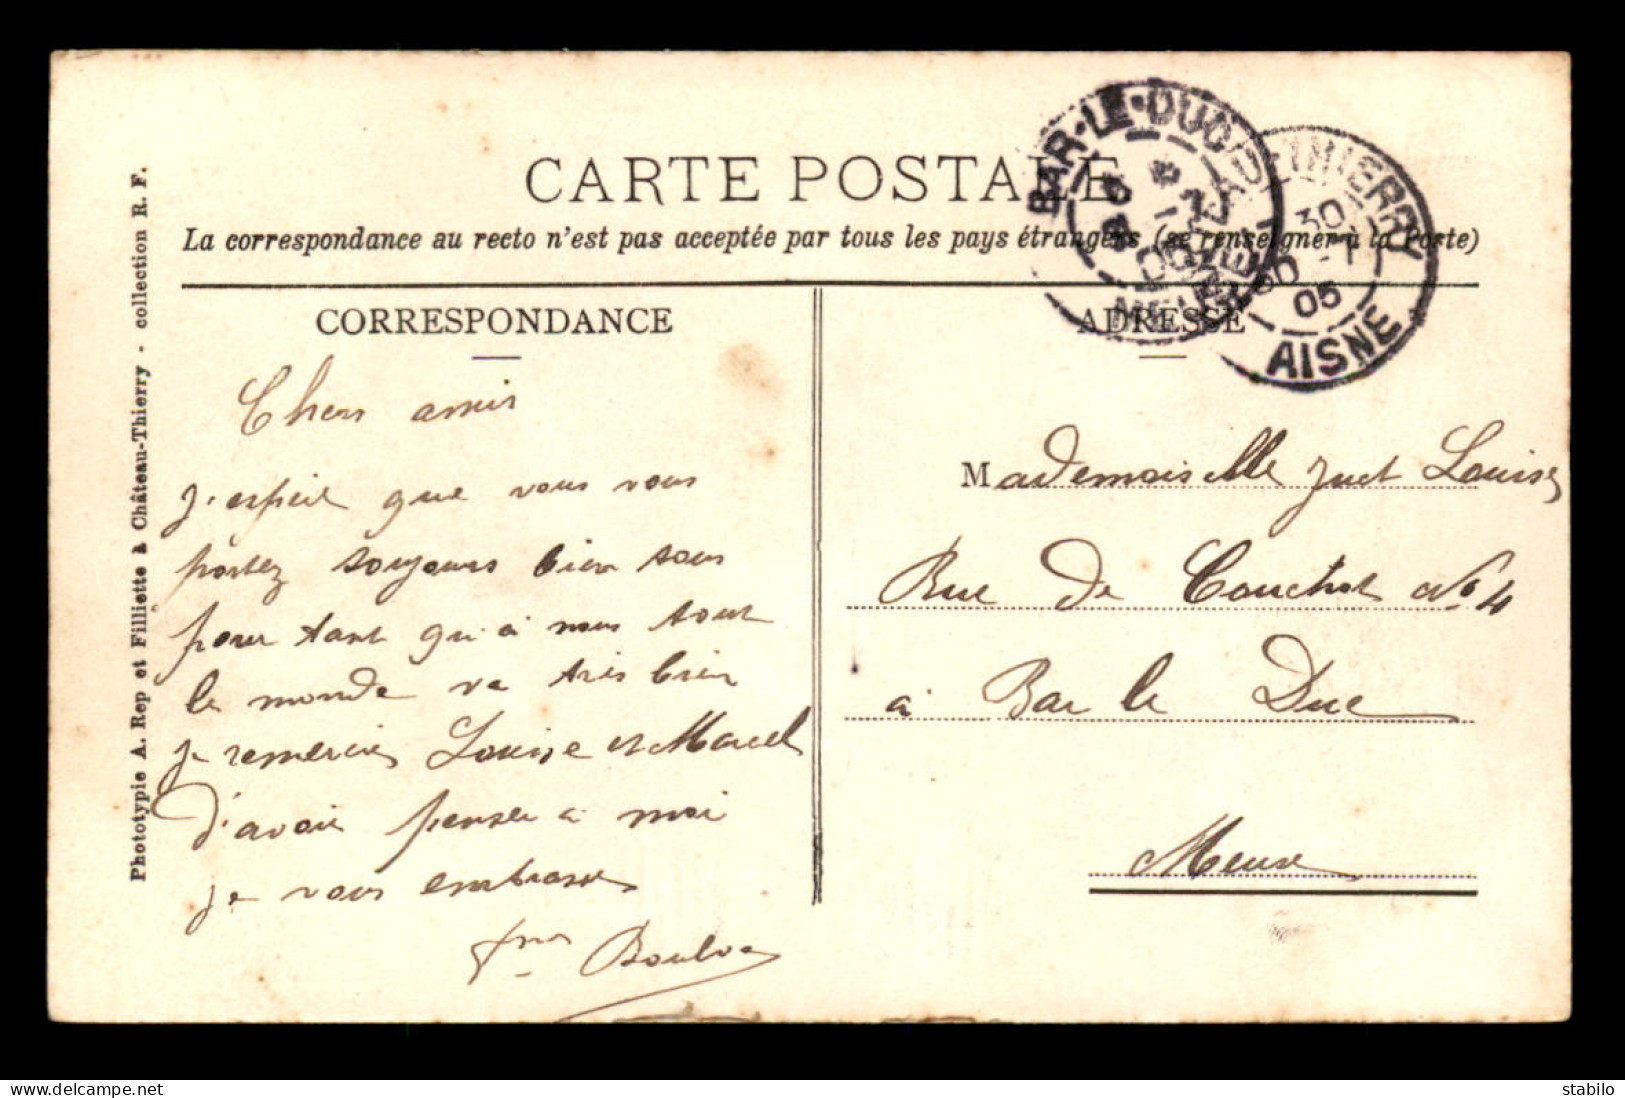 CARTE POSTALE
La correspondance au recto n'est pas acceptée par tous les pays étrangers (se renseigner à la Poste)
CORRESPONDANCE
Chers amis
J'espère que vous vous
portez toujours bien tous
pour tant qu'à nous tout
le monde va très bien
je remercie Louise et Marcel
d'avoir penser à moi
je vous embrasse
ADRESSE
Mademoiselle Juet Louise
Rue de Couchot No 4
à Bar le Duc
Meuse
BAR-LE-DUC
MEUSE
THIERRY
30
05
AISNE
Phototypie A. Rep et Filliette à Château-Thierry - collection R. F.
stabilo